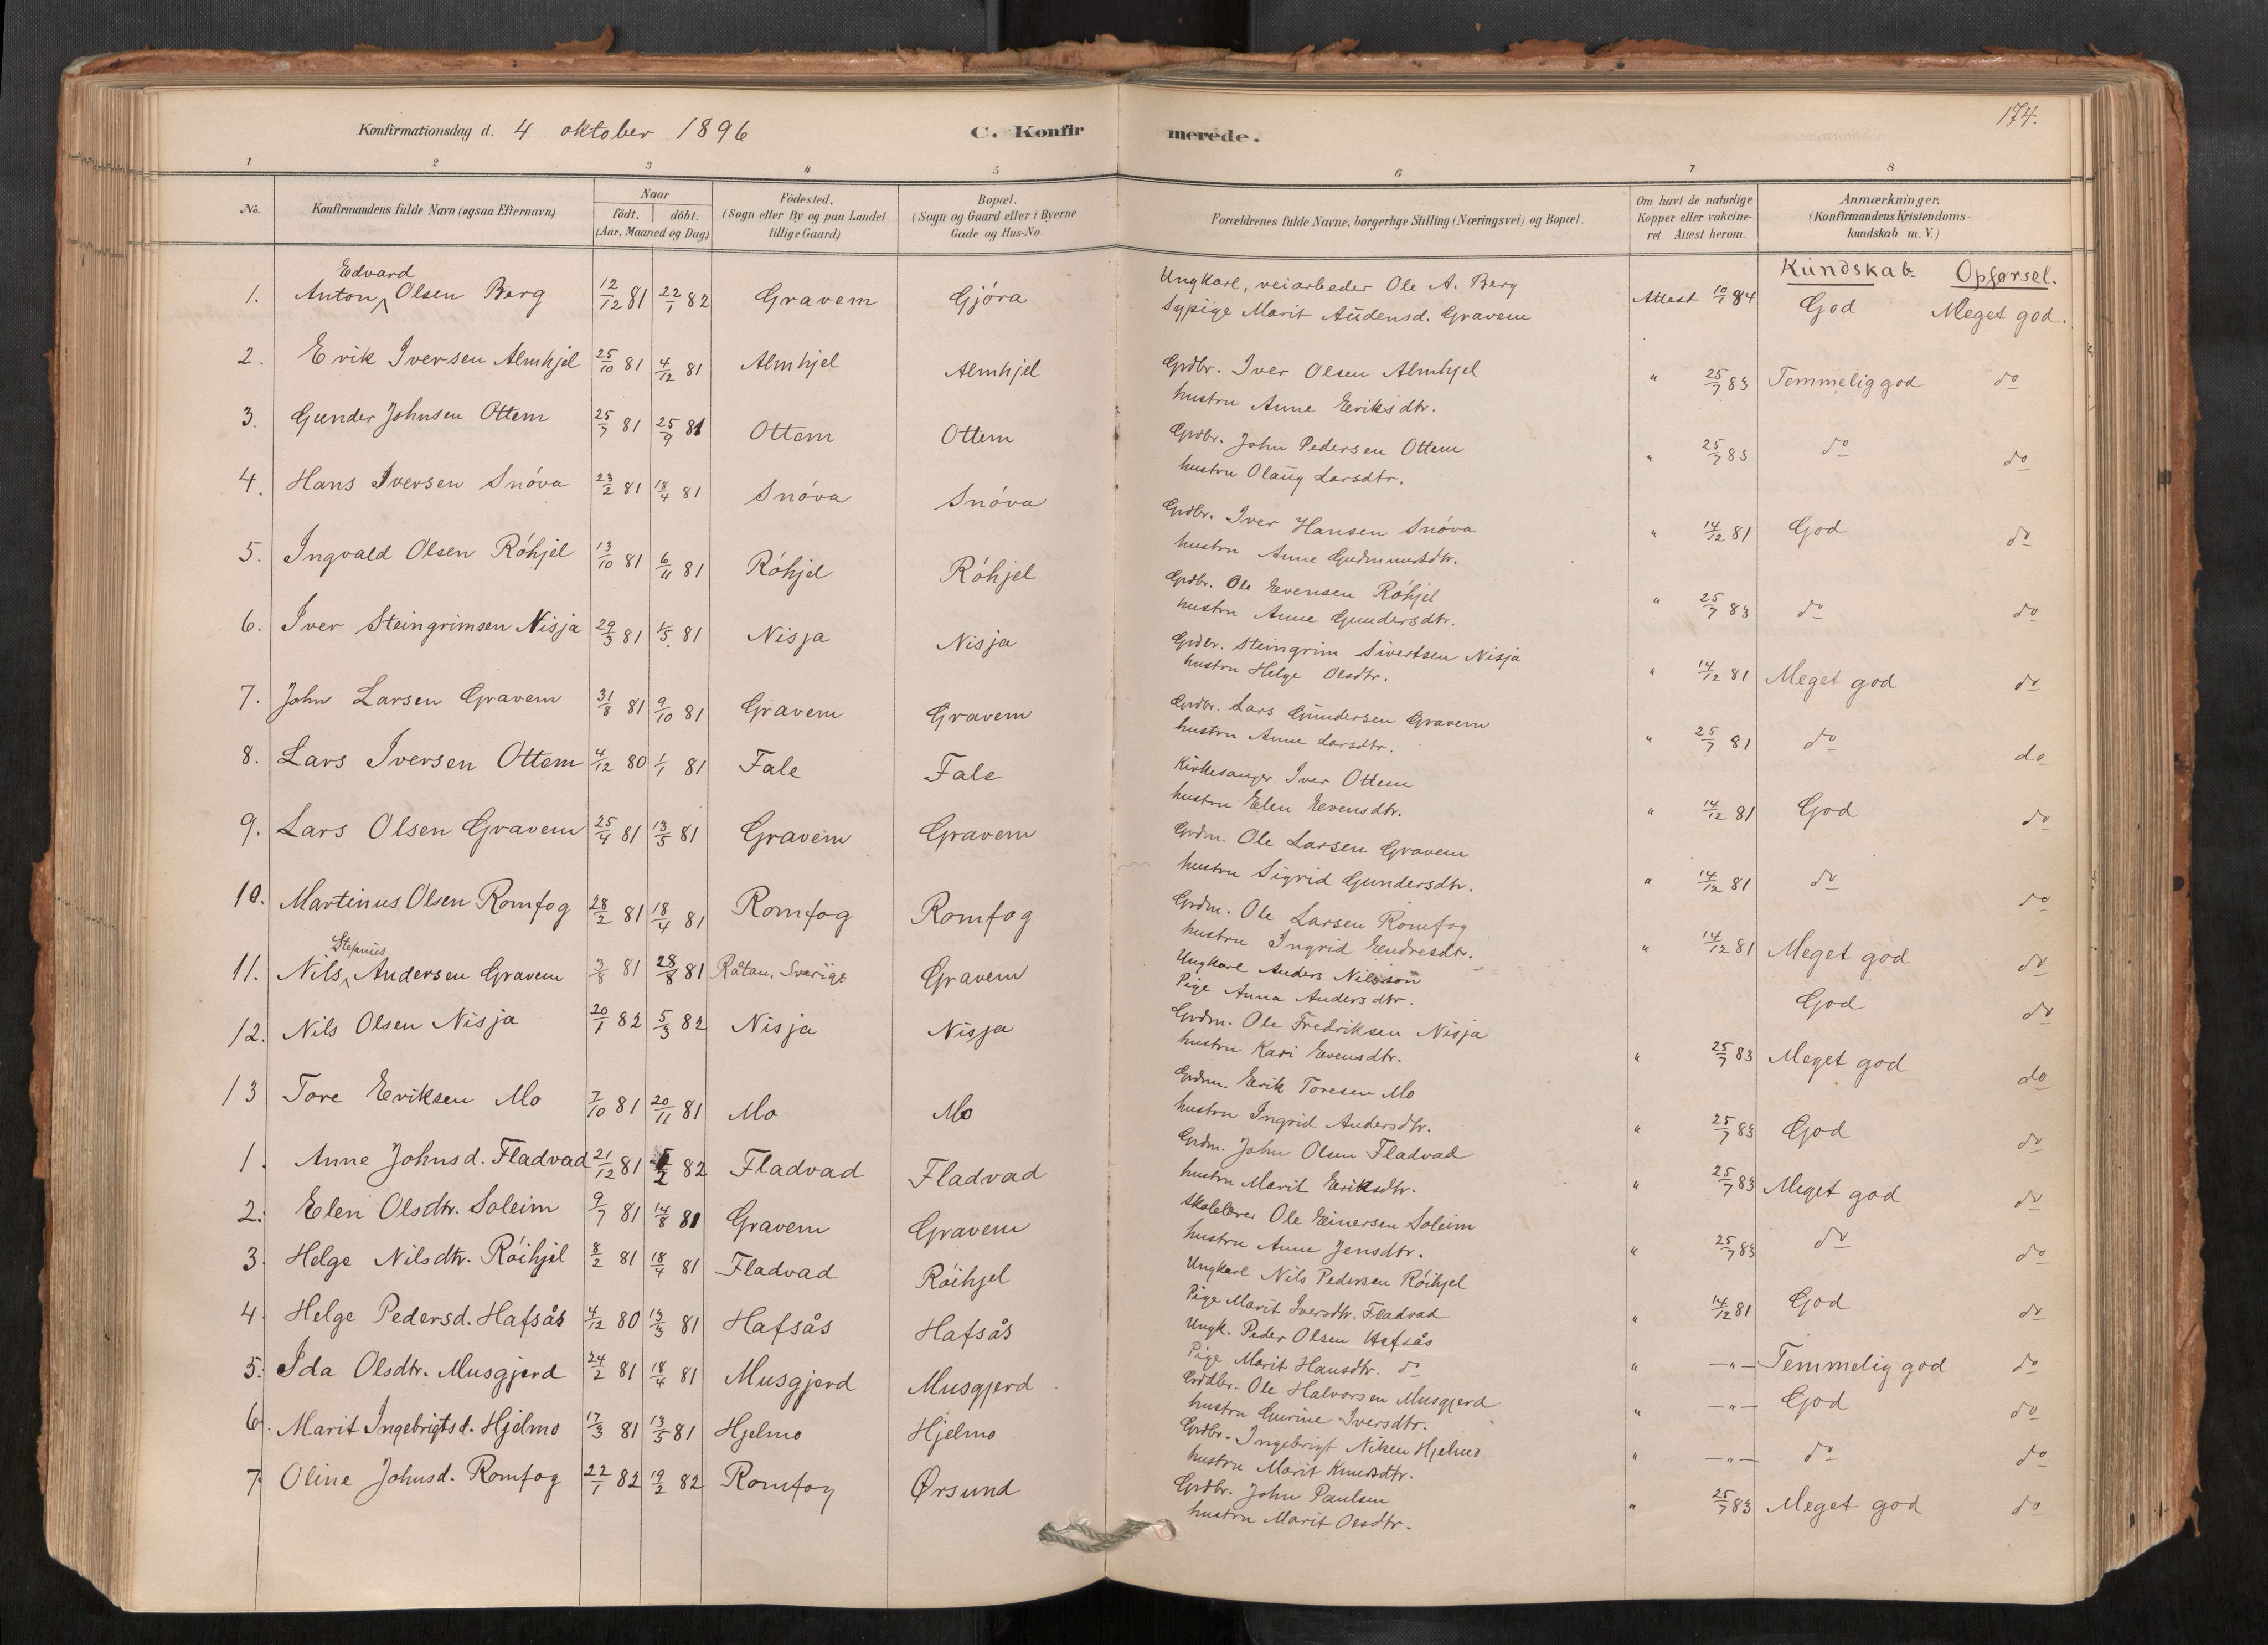 174.
Konfirmationsdag d. 4 oktober 1896 C. Konfirmerede.
1 2 3 4 5 6 7 8
No. Konfirmandens fulde Navn (ogsaa Efternavn) Naar födt. döbt. (Aar, Maaned og Dag) Födested. (Sogn eller By og paa Landet tillige Gaard) Bopæl. (Sogn og Gaard eller i Byerne Gade og Hus-No. Forældrenes fulde Navne, borgerlige Stilling (Næringsvei) og Bopæl. Om havt de naturlige Kopper eller vakcineret Attest herom. Anmærkninger. (Konfirmandens Kristendomskundskab m. V.)
Kundskab Opførsel.
1. Anton Edvard Olsen Berg 12/12 81 22/1 82 Gravem Gjóra Ungkarl, veiarbeder Ole A. Berg Attest 10/1 84 God Meget god.
Sypige Marit Audensd. Gravem
2. Erik Iversen Almhjel 25/10 81 4/12 81 Almhjel Almhjel Grdbr. Iver Olsen Almhjel " 25/7 83 Temmelig god do
hustru Anne Eeriksdtr.
3. Gunder Johnsen Ottem 25/7 81 25/9 81 Ottem Ottem Grdbr. John Pedersen Ottem " 25/7 83 do do
hustru Olaug Larsdtr.
4. Hans Iversen Snóva 23/2 81 18/4 81 Snóva Snóva Grdbr. Iver Hansen Snóva " 14/12 81 God do
hustru Anne Gudmundsdtr.
5. Ingvald Olsen Róhjel 13/10 81 6/11 81 Róhjel Róhjel Grdbr. Ole Evensen Róhjel " 25/7 83 do do
hustru Anne Gundersdtr.
6. Iver Steingrimsen Nisja 29/3 81 1/5 81 Nisja Nisja Grdbr. Steingrim Sivertsen Nisja " 14/12 81 Meget god do
hustru Helge Olsdtr.
7. John Larsen Gravem 31/8 81 9/10 81 Gravem Gravem Grdbr. Lars Gundersen Gravem " 25/7 81 do do
hustru Anne Larsdtr.
8. Lars Iversen Ottem 4/12 80 1/1 81 Fale Fale Kirkesanger Iver Ottem " 14/12 81 God do
hustru Elen Evensdtr.
9. Lars Olsen Gravem 25/4 81 13/5 81 Gravem Gravem Grdm. Ole Larsen Gravem " 14/12 81 do do
hustru Sigrid Gundersdtr.
10. Martinus Olsen Romfog 28/2 81 18/4 81 Romfog Romfog Grdm. Ole Larsen Romfog " 14/12 81 Meget god do
hustru Ingrid Endresdtr.
11. Nils Stefanus Andersen Gravem 3/8 81 28/8 81 Råtan, Sverige Gravem Ungkarl Anders Nilsson God do
Pige Anna Andersdtr.
12. Nils Olsen Nisja 20/1 82 5/3 82 Nisja Nisja Grdm. Ole Fredriksen Nisja " 25/7 83 Meget god do
hustru Kari Evensdtr.
13 Tore Eriksen Mo 7/10 81 20/11 81 Mo Mo Grdm. Erik Toresen Mo " 25/7 83 God do
hustru Ingrid Andersdtr.
1. Anne Johnsd. Fladvad 21/12 81 5/2 82 Fladvad Fladvad Grdm. John Olsen Fladvad " 25/7 83 Meget god do
hustru Marit Eriksdtr.
2. Elen Olsdtr. Soleim 9/7 81 14/8 81 Gravem Gravem Skolelærer Ole Einersen Soleim " 25/7 83 do do
hustru Anne Jensdtr.
3. Helge Nilsdtr. Róihjel 8/2 81 18/4 81 Fladvad Róihjel Ungkarl Nils Pedersen Róihjel " 14/12 81 God do
Pige Marit Iversdtr. Fladvad
4. Helge Pedersd. Hafsås 4/12 80 13/3 81 Hafsås Hafsås Ungk. Peder Olsen Hafsås " —"— Temmelig god do
Pige Marit Hansdtr. do
5. Ida Olsdtr. Musgjerd 24/2 81 18/4 81 Musgjerd Musgjerd Grdbr. Ole Halvorsen Musgjerd " —"— God do
hustru Gurine Iversdtr.
6. Marit Ingebrigtsd. Hjelmo 17/3 81 13/5 81 Hjelmo Hjelmo Grdbr. Ingebrigt Nilsen Hjelmo " —"— do do
hustru Marit Knudsdtr.
7 Oline Johnsd. Romfog 22/1 82 19/2 82 Romfog Ørsund Grdbr. John Paulsen " 25/7 83 Meget god do
hustru Marit Olsdtr.